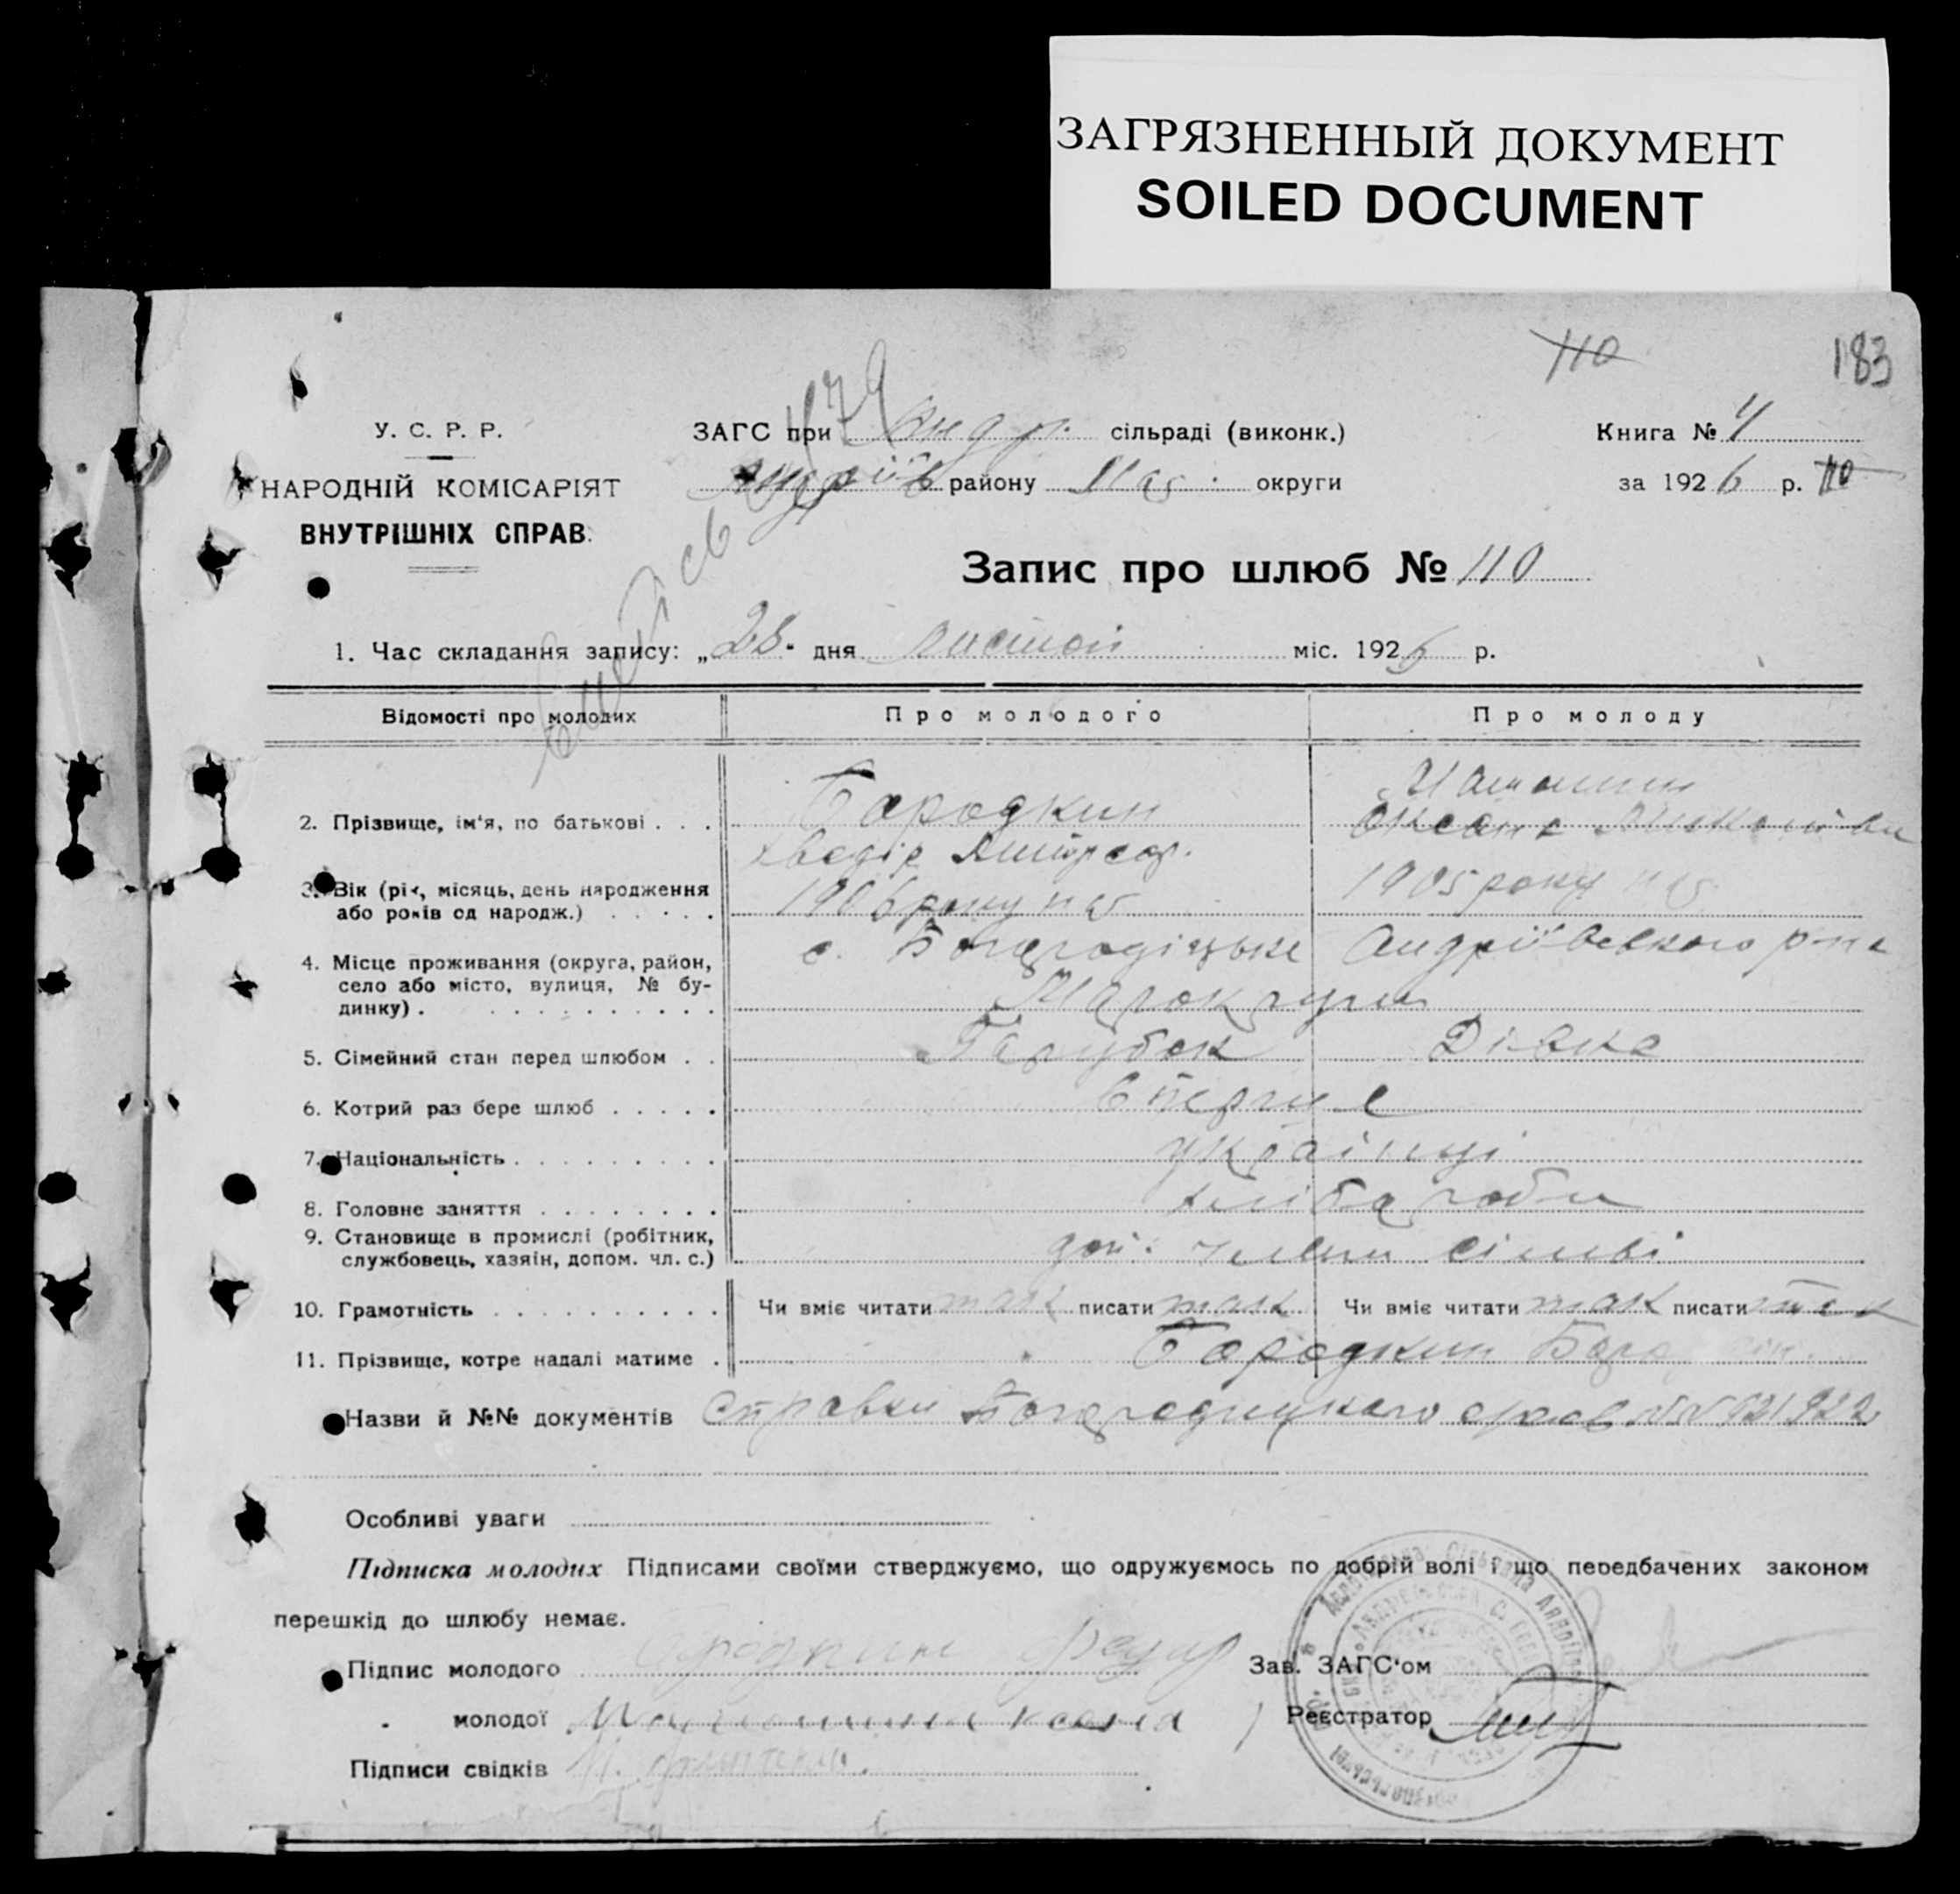 ЗАГРЯЗНЕННЫЙ ДОКУМЕНТ
SOILED DOCUMENT
110
183
У. С. Р. Р.
НАРОДНІЙ КОМІСАРІЯТ
ВНУТРІШНІХ СПРАВ.
ЗАГС при Андр. сільраді (виконк.)
Андріїв району Мар. округи
Книга № 4
за 1926 р. 110
Запис про шлюб № 110
1. Час складання запису: „28" дня листоп міс. 1926 р.
Відомості про молодих
Про молодого
Про молоду
2. Прізвище, ім'я, по батькові . . .
Бародкин
Хведір
Оксана
3. Вік (рік, місяць, день народження
або років од народж.) . . . . .
1906 року
1905 року
4. Місце проживання (округа, район,
село або місто, вулиця, № бу-
динку) . . . . . . . . . .
с. Богородіцьке Андріївського р-на
Марокруги
5. Сімейний стан перед шлюбом . .
Парубок
Дівка
6. Котрий раз бере шлюб . . . . .
Вперше
7. Національність . . . . . . . . .
українці
8. Головне заняття . . . . . . . .
хлібороби
9. Становище в промислі (робітник,
службовець, хазяїн, допом. чл. с.)
доп. члени сімьі
10. Грамотність . . . . . . . . . .
Чи вміє читати так писати так
Чи вміє читати так писати так
11. Прізвище, котре надалі матиме .
Бародкин
Назви й №№ документів Справки Богородицкого 921 922
Особливі уваги
Підписка молодих Підписами своїми стверджуємо, що одружуємось по добрій волі і що передбачених законом
перешкід до шлюбу немає.
Підпис молодого
Зав. ЗАГС'ом
молодої
Реєстратор
Підписи свідків